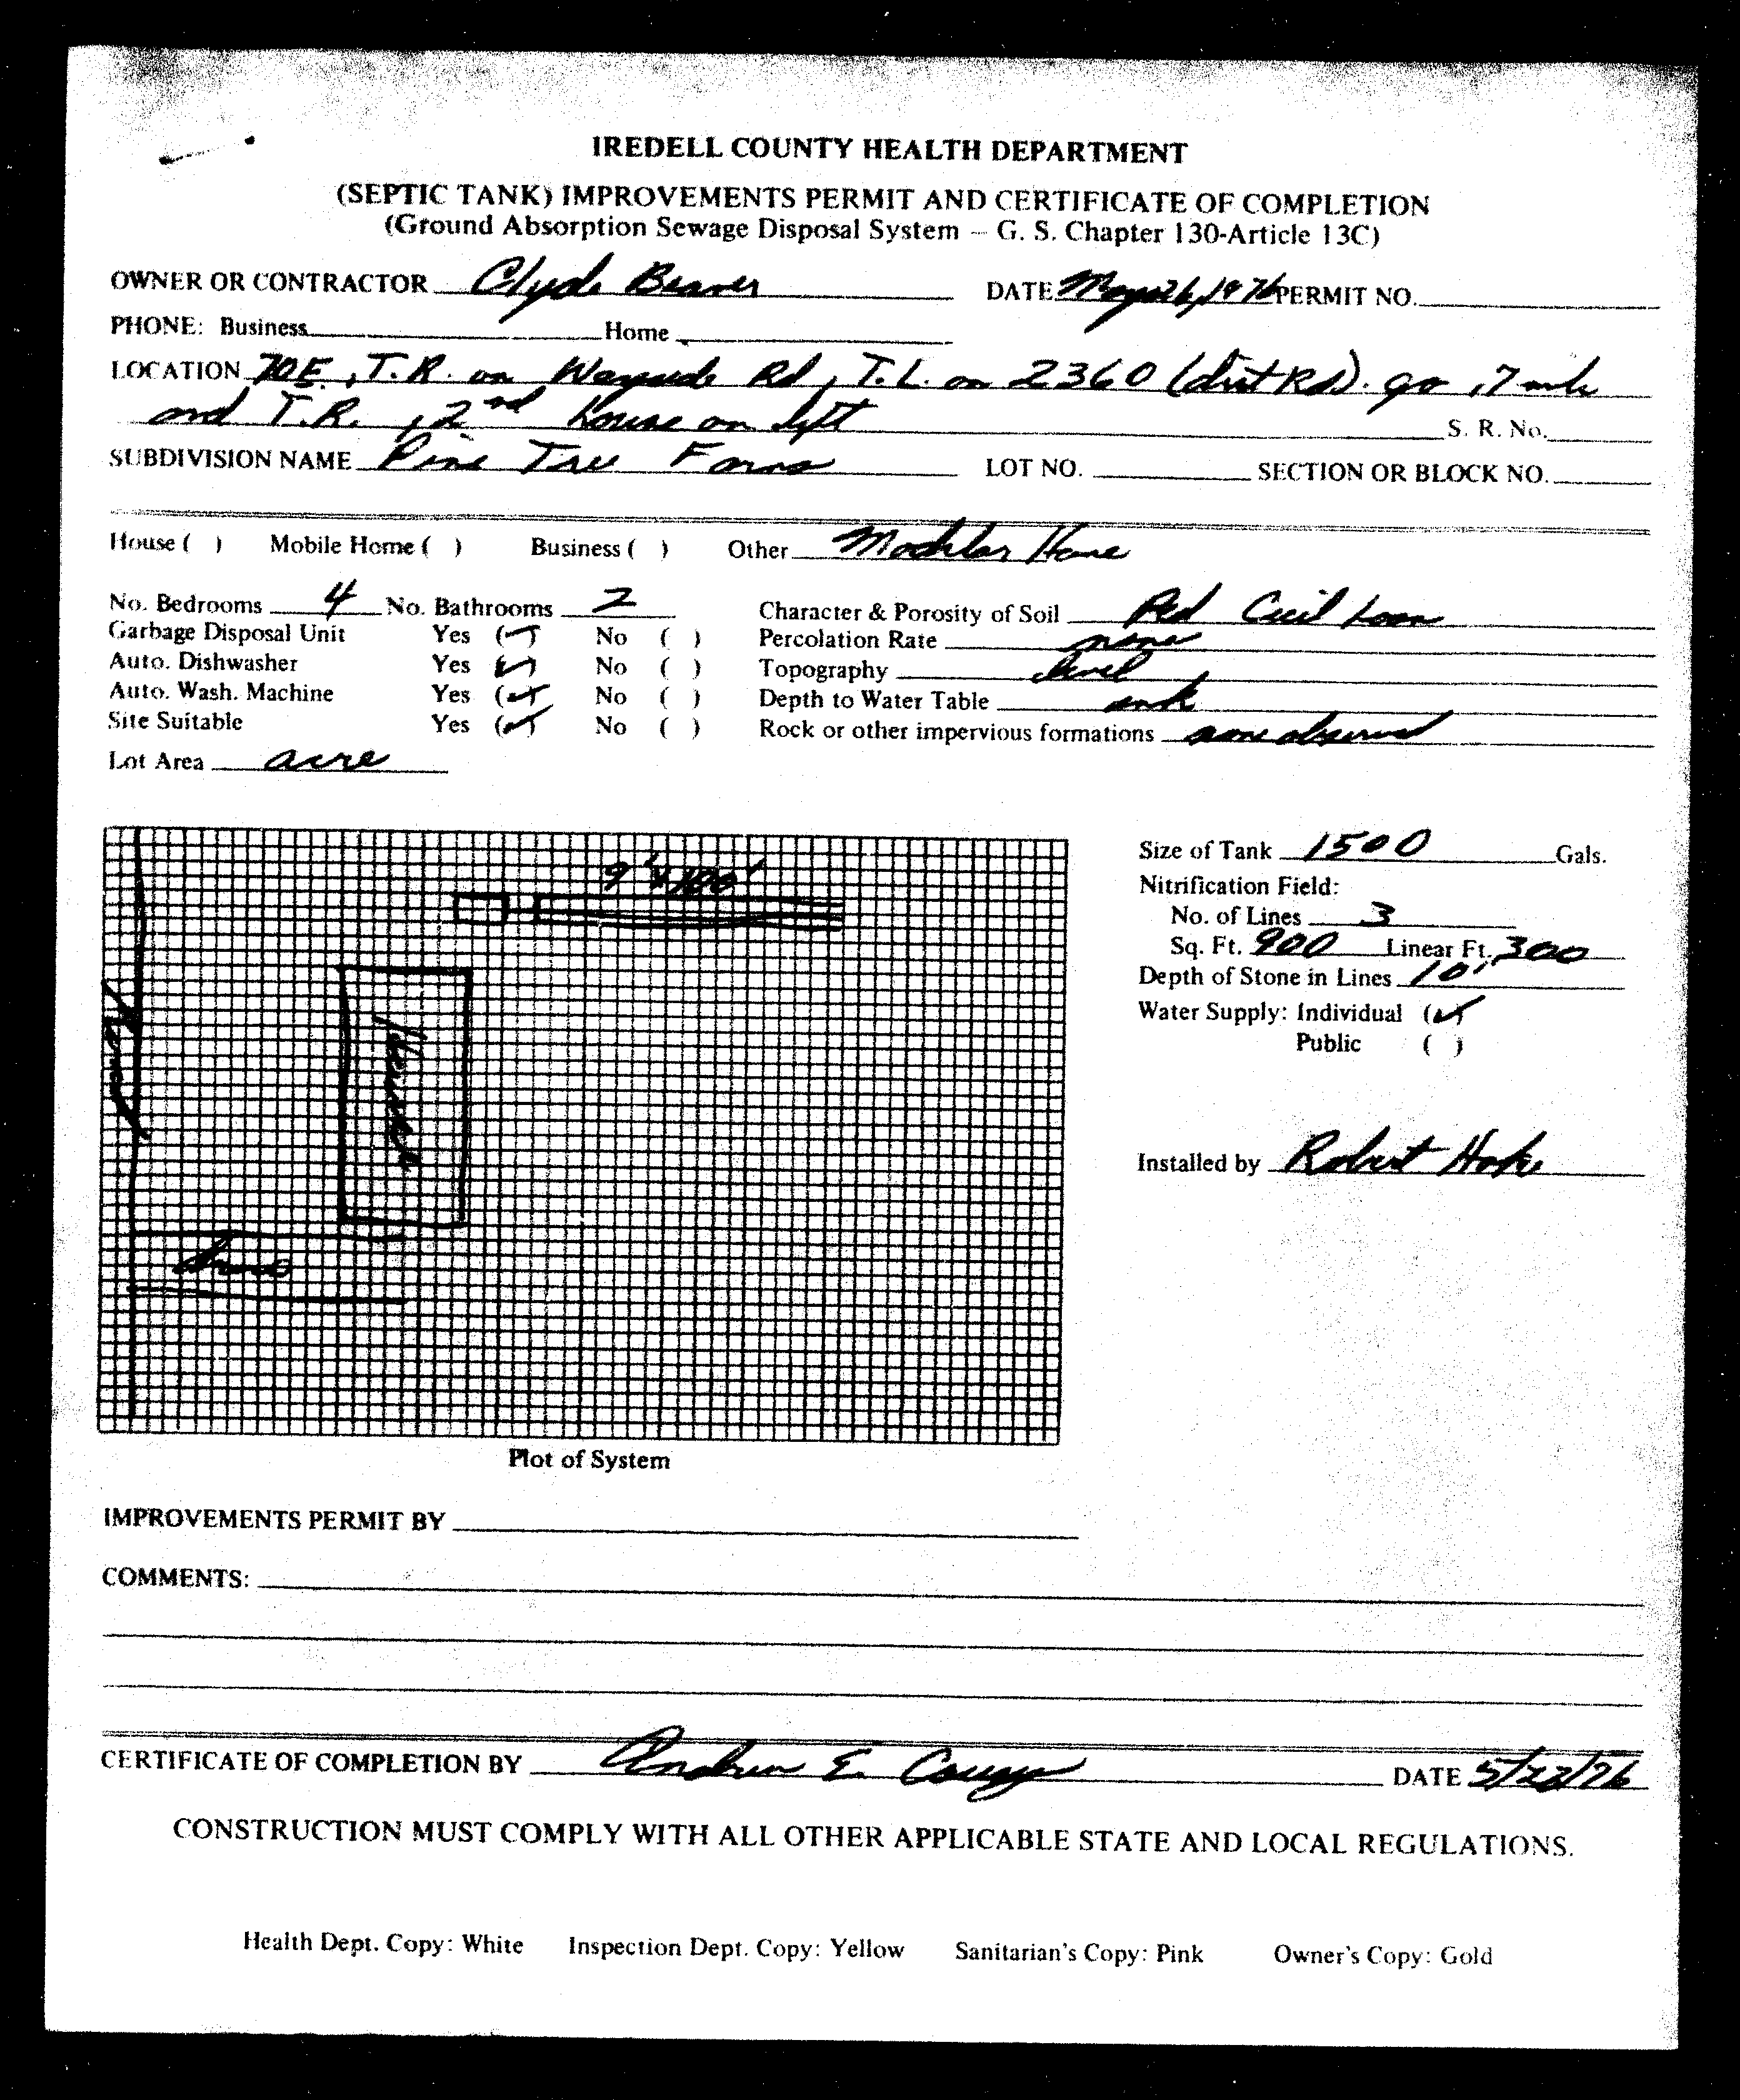 IREDELL COUNTY HEALTH DEPARTMENT
(SEPTIC TANK) IMPROVEMENTS PERMIT AND CERTIFICATE OF COMPLETION
(Ground Absorption Sewage Disposal System – G. S. Chapter 130-Article 13C)
OWNER OR CONTRACTOR Clyde Beaver DATE May 26, 1976 PERMIT NO.
PHONE: Business Home
LOCATION 70E, T.R. on Wayside Rd, T.L. on 2360 (dirt Rd). go .7 mile
and T.R., 2nd house on left S. R. No.
SUBDIVISION NAME Pine Tree Farms LOT NO. SECTION OR BLOCK NO.
House ( ) Mobile Home ( ) Business ( ) Other Modular Home
No. Bedrooms 4 No. Bathrooms 2 Character & Porosity of Soil Red Cecil Loam
Garbage Disposal Unit Yes (✓) No ( ) Percolation Rate none
Auto. Dishwasher Yes (✓) No ( ) Topography level
Auto. Wash. Machine Yes (✓) No ( ) Depth to Water Table unk
Site Suitable Yes (✓) No ( ) Rock or other impervious formations none observed
Lot Area acre
9' x 100'
House
Size of Tank 1500 Gals.
Nitrification Field:
No. of Lines 3
Sq. Ft. 900 Linear Ft. 300
Depth of Stone in Lines 10"
Water Supply: Individual (✓)
Public ( )
Installed by Robert Hoke
Plot of System
IMPROVEMENTS PERMIT BY
COMMENTS:
CERTIFICATE OF COMPLETION BY Andrew E. DATE 5/
CONSTRUCTION MUST COMPLY WITH ALL OTHER APPLICABLE STATE AND LOCAL REGULATIONS.
Health Dept. Copy: White Inspection Dept. Copy: Yellow Sanitarian's Copy: Pink Owner's Copy: Gold